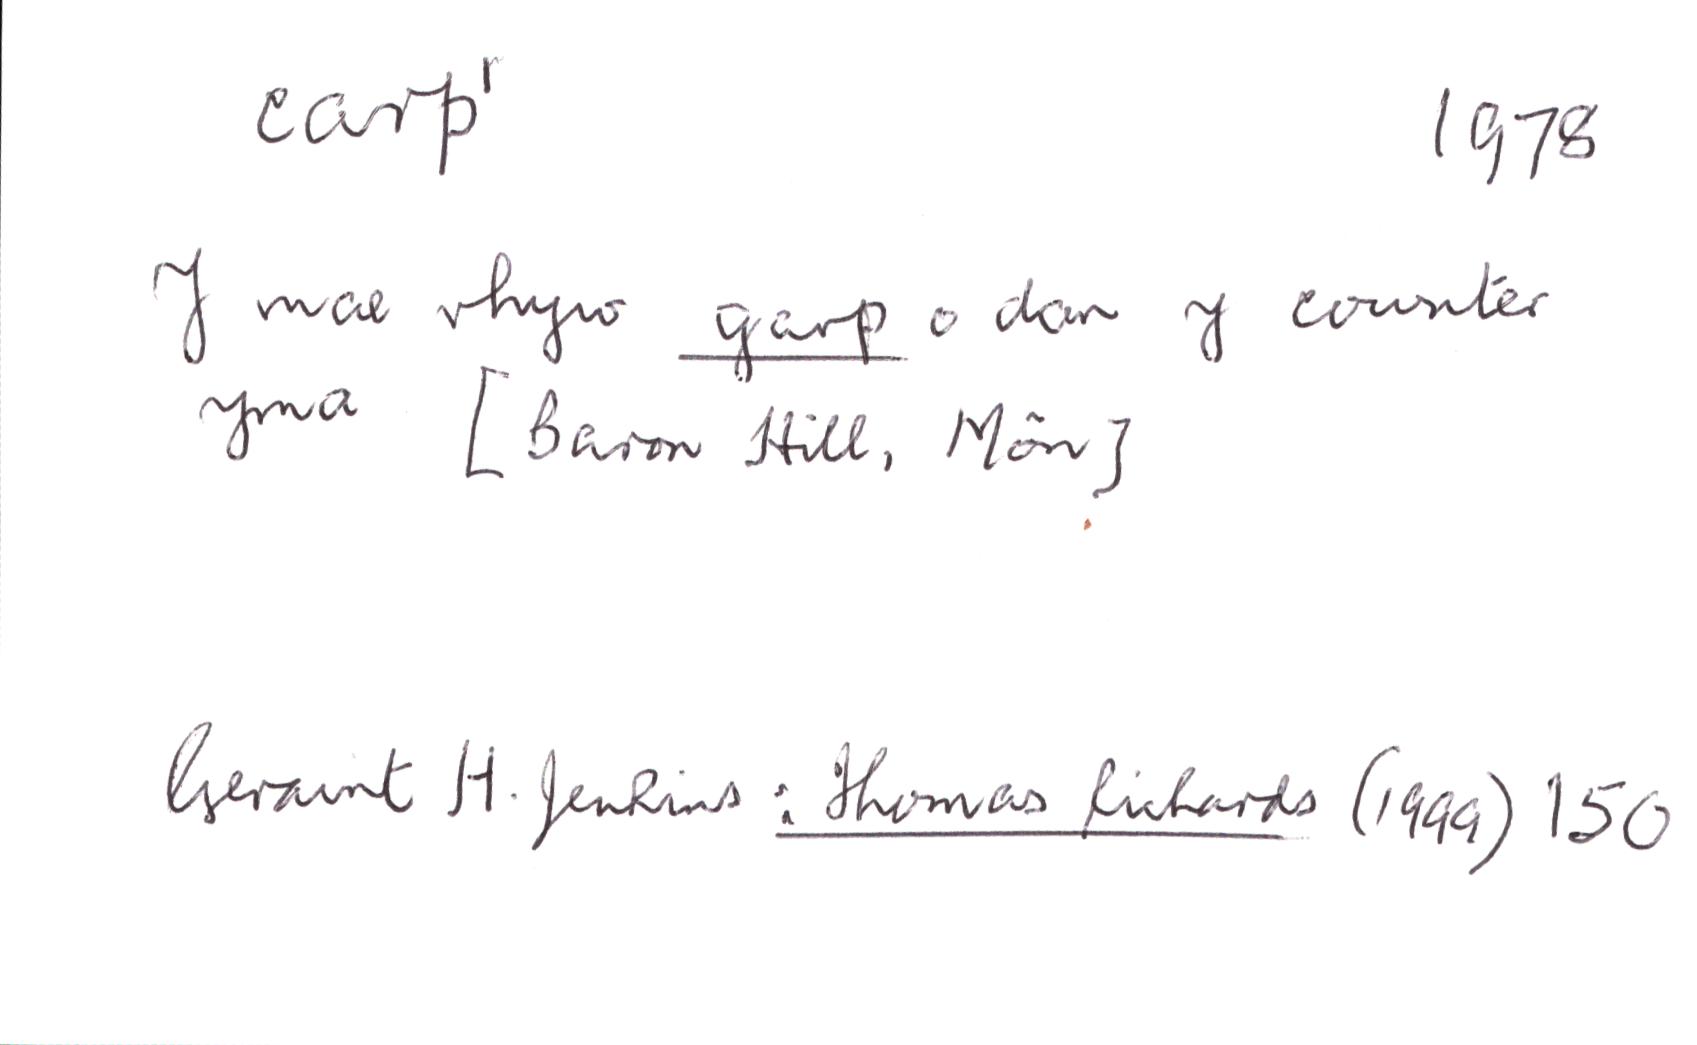 carp¹ 1978
Y mae rhyw garp o dan y counter
yma [Baron Hill, Môn]
Geraint H. Jenkins : Thomas Richards (1999) 150